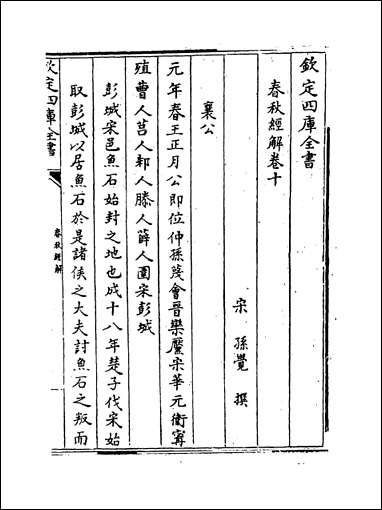 欽定四庫全書
春秋經解卷十
宋 孫覺 撰
襄公
元年春王正月公即位仲孫蔑會晉欒黶宋華元衛甯
殖曹人莒人邾人滕人薛人圍宋彭城
彭城宋邑魚石始封之地也成十八年楚子伐宋始
取彭城以居魚石於是諸侯之大夫討魚石之叛而
欽定四庫全書
春秋經解
一